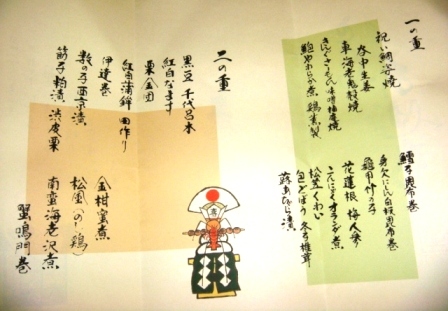 一の重
祝い鯛姿焼
春中生巻
車海老鬼殻焼
鮑やわらか煮 鶏燻製
鱈子昆布巻
身欠にしん白板昆布巻
亀甲竹の子
花蓮根 梅人参
こんにゃくオランダ煮
松笠くわい
包ごぼう 冬子椎茸
蕗あちゃら漬
二の重
黒豆 千代呂木
紅白なます
栗金団
紅白蒲鉾 田作り
伊達巻
数の子西京漬
筋子粕漬 渋皮栗
金柑蜜煮
松風(のし鶏)
南蛮海老沢煮
蟹鳴門巻